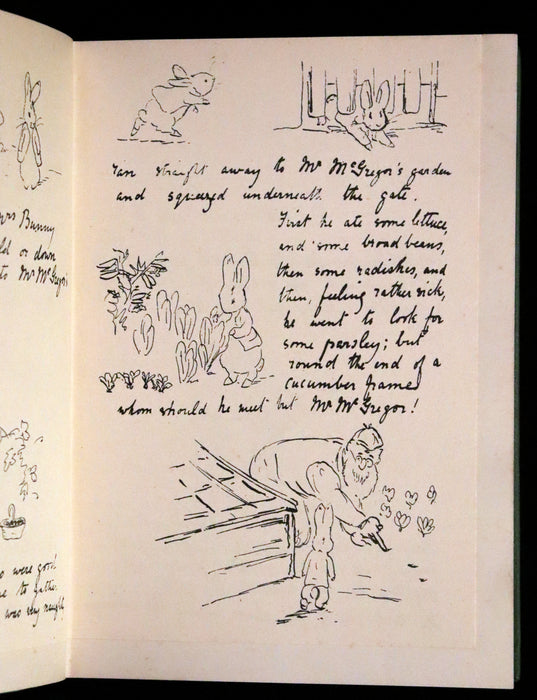 urs Bunny
ld or down
to Mr McGregor's
o were good
me to gather
was very naughty
ran straight away to Mr McGregor's garden
and squeezed underneath the gate.
First he ate some lettuce,
and some broad beans,
then some radishes, and
then, feeling rather sick,
he went to look for
some parsley; but
round the end of a
cucumber frame
whom should he meet but Mr McGregor!